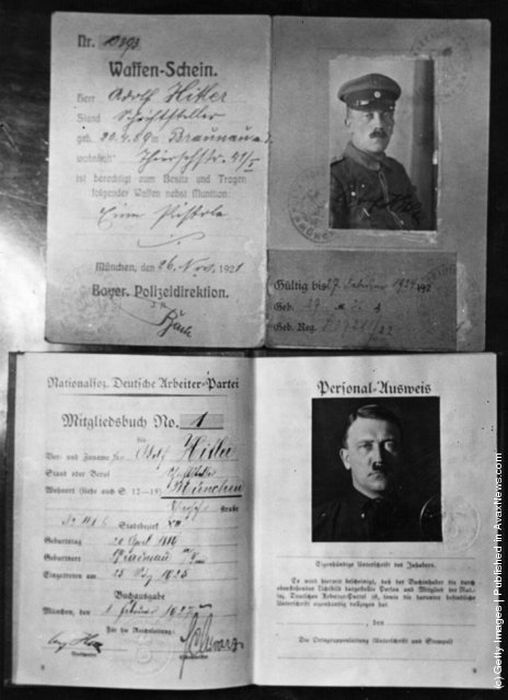 Nr.
Waffen-Schein.
Herr Adolf Hitler
Stand Schriftsteller
geb. 20.4.89 in Braunau a/I.
wohnhaft Thierschstr. 41/I
ist berechtigt zum Besitz und Tragen
folgender Waffen nebst Munition:
Eine Pistole
München, den 26. Nov. 1921
Bayer. Polizeidirektion.
Gültig bis 27. Februar
Geb.
Geb. Reg.
Nationalsoz. Deutsche Arbeiter-Partei
Mitgliedsbuch No. 1
für
Vor- und Zuname Adolf Hitler
Stand oder Beruf Schriftsteller
Wohnort (siehe auch S. 12-19) München
straße
No. 41 Stadtbezirk
Geburtstag 20 April
Geburtsort Braunau
Eingetreten am 1925
Buchausgabe
München, den 1. Februar 1927
Für die Reichsleitung:
Schwarz
Personal-Ausweis
Eigenhändige Unterschrift des Inhabers.
Es wird hiermit bescheinigt, daß der Buchinhaber die durch
obenstehendes Lichtbild dargestellte Person und Mitglied der Nat.
soz. Deutschen Arbeiter-Partei ist, sowie die darunter befindliche
Unterschrift eigenhändig vollzogen hat.
, den
Die Ortsgruppenleitung (Unterschrift und Stempel)
(c) Getty Images | Published in AvaxNews.com